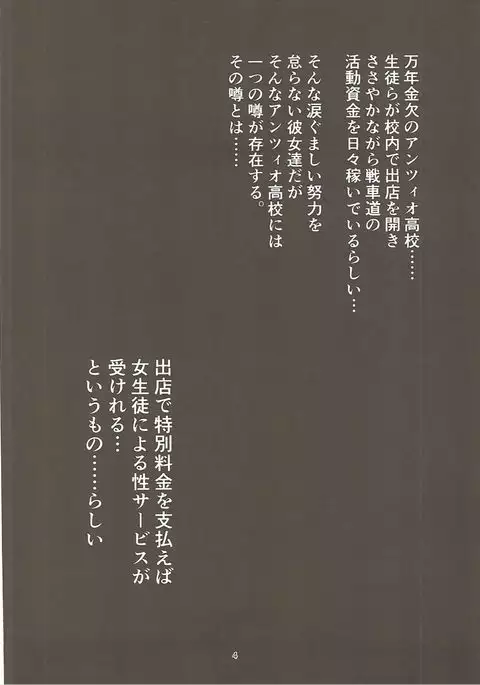 万年金欠のアンツィオ高校……
生徒らが校内で出店を開き
ささやかながら戦車道の
活動資金を日々稼いでいるらしい…
そんな涙ぐましい努力を
怠らない彼女達だが
そんなアンツィオ高校には
一つの噂が存在する。
その噂とは……
出店で特別料金を支払えば
女生徒による性サービスが
受けれる…
というもの……らしい
4